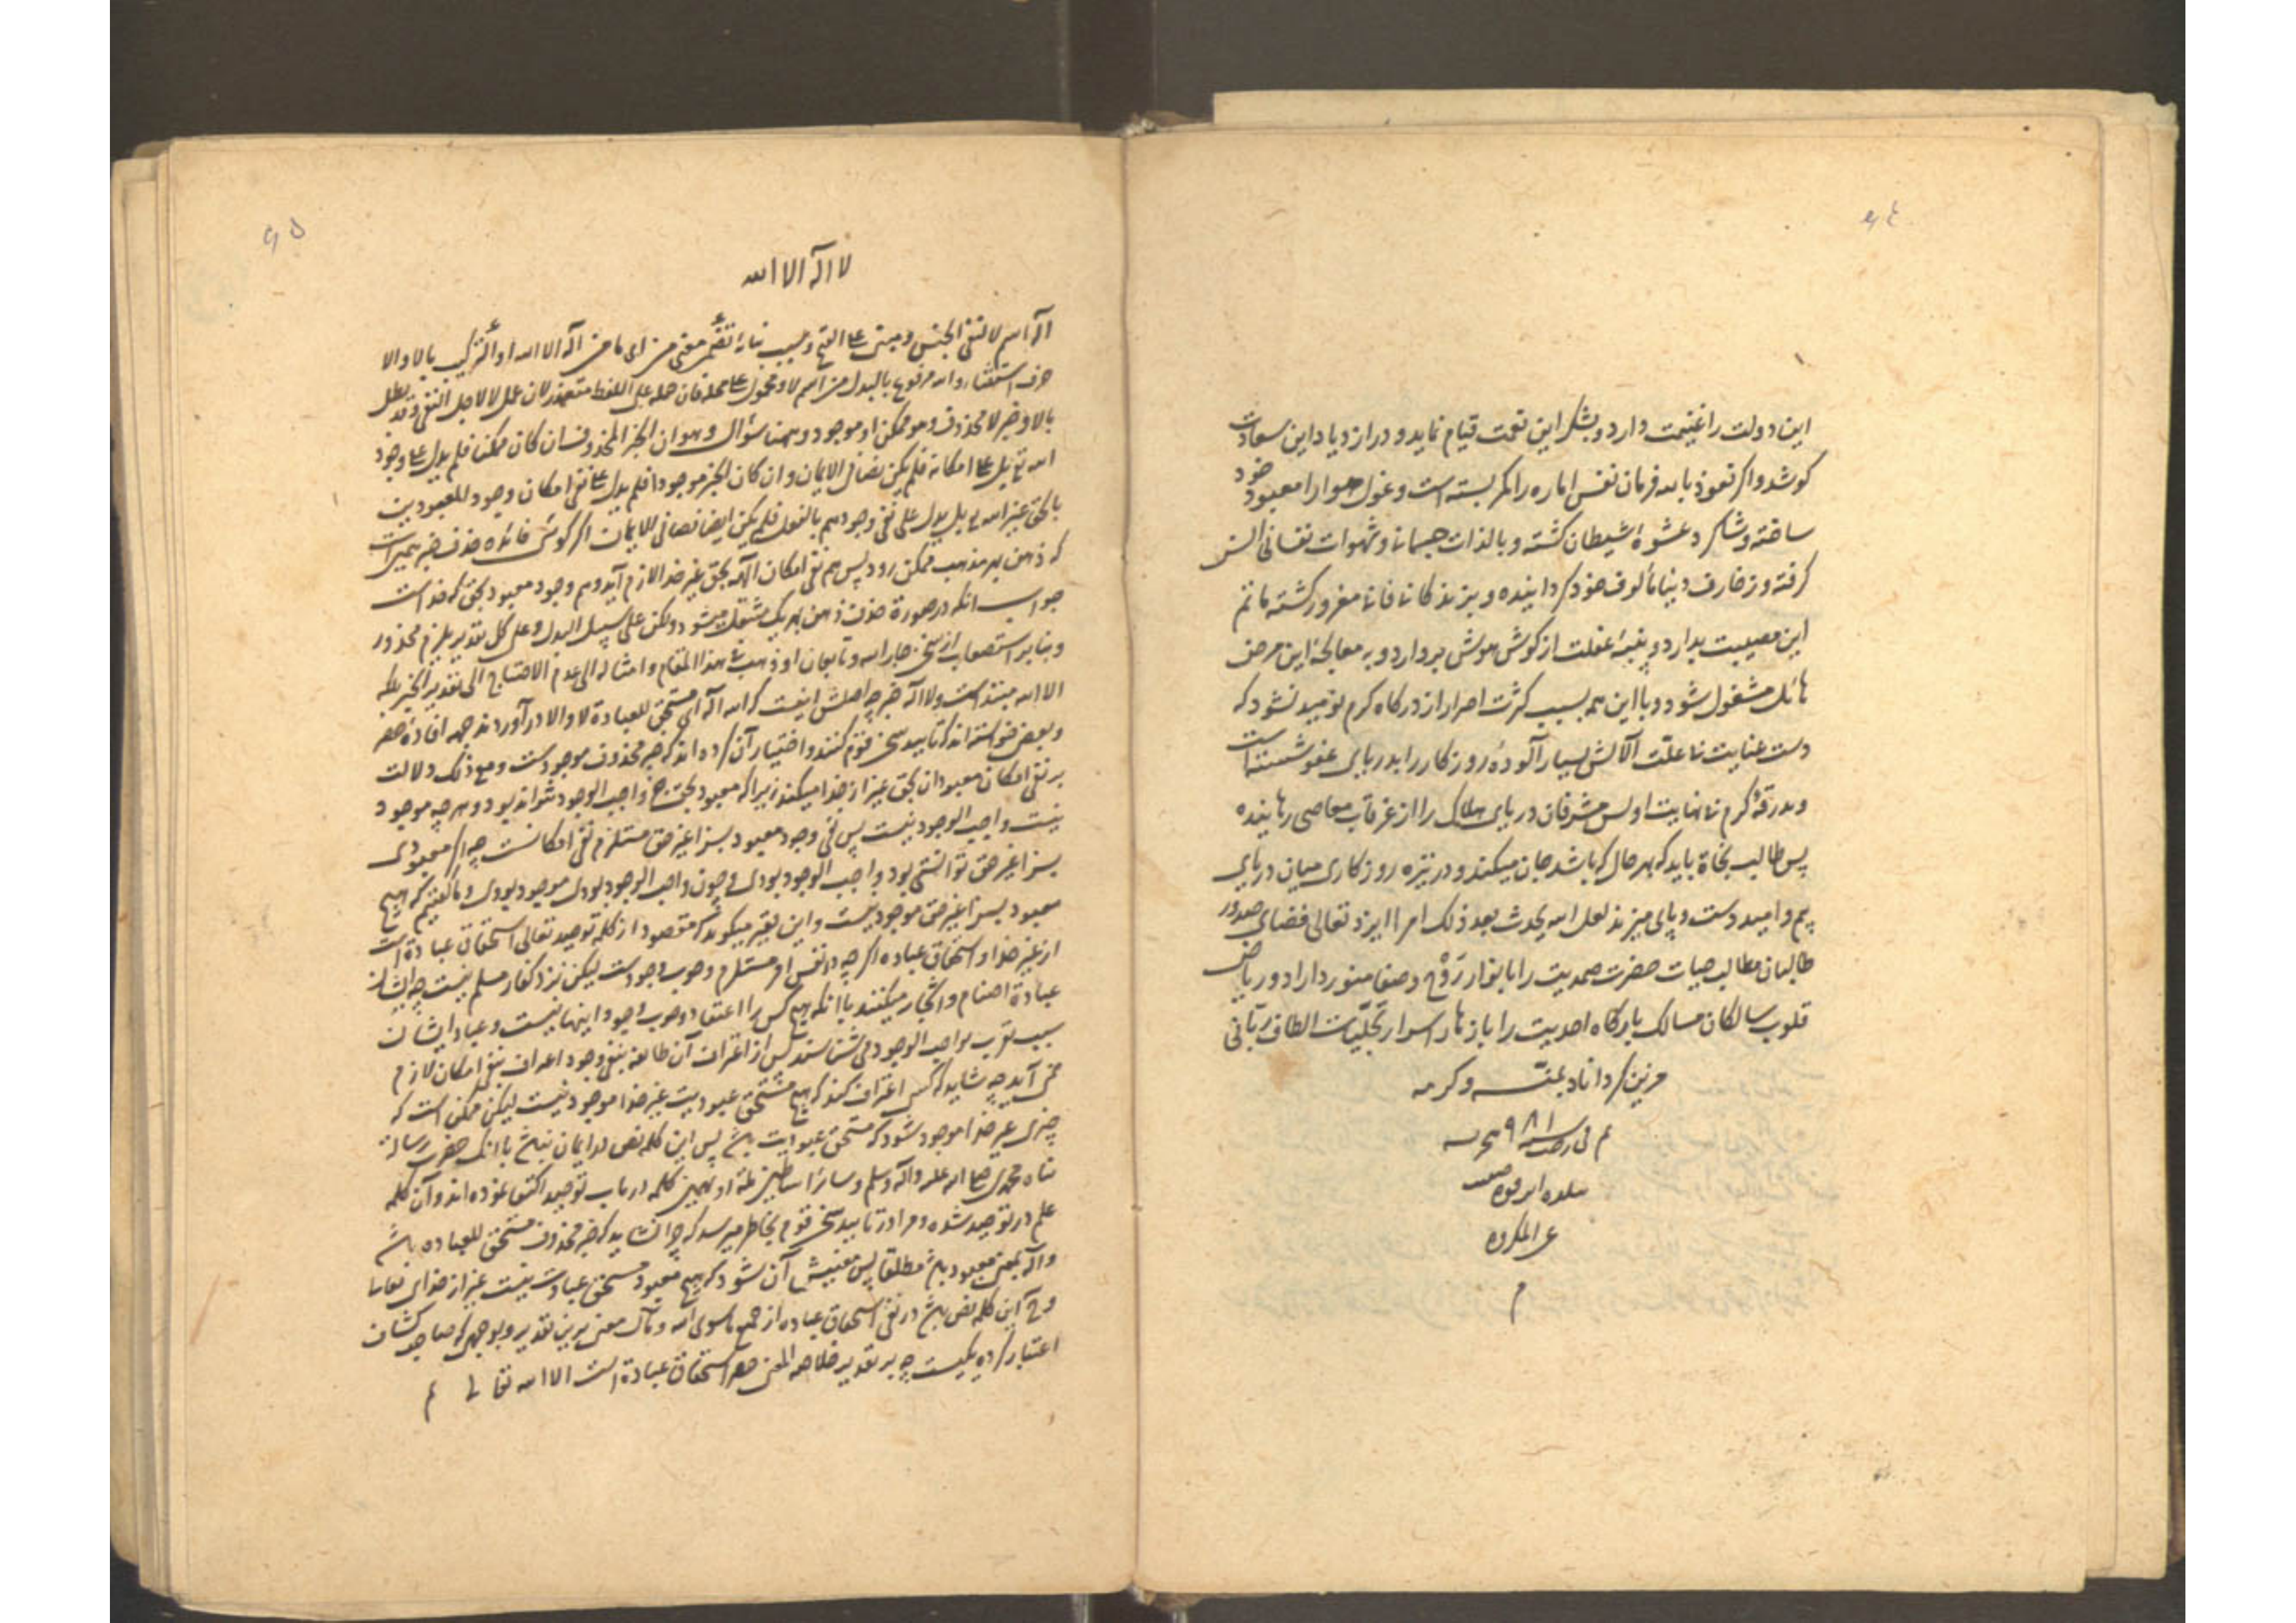 ٩٤
این دولت را غنیمت دارد و بشکر این نعمت قیام نماید و در ازدیاد این سعادت
کوشد و اگر نعوذ بالله فرمان نفس اماره را کمر بسته است و غول هوا را معبود خود
ساخته و شاکرد عشوهٔ شیطان کشته و بالذات جسمانی و شهوات نفسانی انس
کرفته و زخارف دنیا مألوف خود کردانیده و بزندکانی فانی مغرور کشته ماتم
این مصیبت بدارد و پنبهٔ غفلت از کوش هوش بردارد و به معالجهٔ این مرض
هائل مشغول شود و با این همه بسبب کثرت اصرار از درکاه کرم نومید نشود که
دست عنایت بی علّت آلایش بسیار آلودهٔ روزکار را بدریای عفو شسته است
و بدرقهٔ کرم بی نهایت او بس مشرفان دریای هلاک را از غرقاب معاصی رهانیده
پس طالب نجاة باید که بهر حال که باشد جان میکند و در نیزه روزکاری میان دریای
بیم و امید دست و پای میزند لعل الله یحدث بعد ذلک امرا ایزد تعالی فضای صدور
طالبان مطالب حیات حضرت صمدیت را بانوار روح و صفا منور داراد و ریاض
قلوب سالکان مسالک بارکاه احدیت را بازهار اسرار تجلّیات الطاف ربّانی
مزین کرداناد بمنّه و کرمه
م فی سنه ٩٨١ هجریه
بلده ابرقوه
م
٩٥
لا اله الا الله
اله اسم لا لنفی الجنس و مبنی علی الفتح و سبب بنائه تضمّن معنی من ای ما من اله الا الله او الترکیب بالا و الا
حرف استثنا و الله مرفوع بالبدل من اسم لا و محمول علی محله فان حمله علی اللفظ متعذر لان عمل لا لاجل النفی و قد بطل
بالا و خبر لا محذوف و هو ممکن او موجود و ههنا سؤال و هو ان الخبر المحذوف ان کان ممکن فلم یدل علی وجود
الله تع بل علی امکانه فلم یکن نصا فی الایمان و ان کان الخبر موجودا فلم یدل علی نفی امکان وجود المعبودیت
بالحق غیر الله تع بل یدل علی نفی وجودهم بالفعل فلم یکن ایضا نصا فی الایمان اگر گوئی فائده حذف خبر همین است
که ذهن بهر مذهب ممکن رود پس هم نفی امکان الهه بحق غیر خدا لازم آید و هم وجود معبود بحق که خداست
جواب آنکه در صورة حذف ذهن بهر یک منتقل میشود و لکن علی سبیل البدل و علی کل تقدیر یلزم محذور
و بنا بر استصعاب این سخن جار الله و تابعان او ذهب فی هذا المقام و امثاله الی عدم الاحتیاج الی تقدیر الخبر بلکه
الا الله مبتداست و لا اله خبر چه اصلش اینست که الله اله ای مستحق للعبادة لا و الا در آوردند جهه افادهٔ حصر
و بعضی خواسته اند که تایید سخن قوم کنند و اختیار آن کرده اند که خبر محذوف موجود است و مع ذلک دلالت
بر نفی امکان معبودان بحق غیر از خدا میکند زیرا که معبود بحق جز واجب الوجود نتواند بود و هر چه موجود
نیست واجب الوجود نیست پس نفی وجود معبود بسزا غیر حق مستلزم نفی امکانست چه اگر معبودی
بسزا غیر حق توانستی بود واجب الوجود بودی و چون واجب الوجود بودی موجود بودی و ما گفتیم که هیچ
معبود بسزا غیر حق موجود نیست و این فقیر میکوید که مقصود از کلمه توحید تعالی استحقاق عبادة است
از غیر خدا و استحقاق عباده اگر چه در نفس امر مستلزم وجوب وجود است لیکن نزد کفار مسلم نیست چه ایشان
عبادة اصنام و اشجار میکنند با آنکه هیچ کس را اعتقاد وجوب وجود اینها نیست و عباد ایشان
سبب تقرب بواجب الوجود می شناسند پس از اعتراف آن طائفه بنفی وجود اعتراف بنفی امکان لازم
نمی آید چه شاید که کسی اعتراف کند که هیچ مستحق عبودیت غیر خدا موجود نیست لیکن ممکن است که
چیزی غیر خدا موجود شود که مستحق عبودیت باشد پس این کلمه نص در ایمان نباشد با آنک حضرت رسالة
پناه محمدی صلی الله علیه و آله و سلم و سائر اساطین ملة او بهمین کلمه در باب توحید اکتفا نموده اند و آن کلمه
علم در توحید شده و مرا در تایید سخن قوم بخاطر میرسد که چرا نشاید که خبر محذوف مستحق للعباده باشد
و اله بمعنی معبود باشد مطلقا پس معنیش آن شود که هیچ معبود مستحق عبادت نیست غیر از خدای تعالی
و ح این کلمه نص باشد در نفی استحقاق عباده از جمیع ما سوی الله و مآل معنی برین تقدیر و بوجهی که صاحب کشاف
اعتبار کرده یکیست چه بر تقدیر خلاصه المعنی حصر استحقاق عبادة است الا الله تعالی م